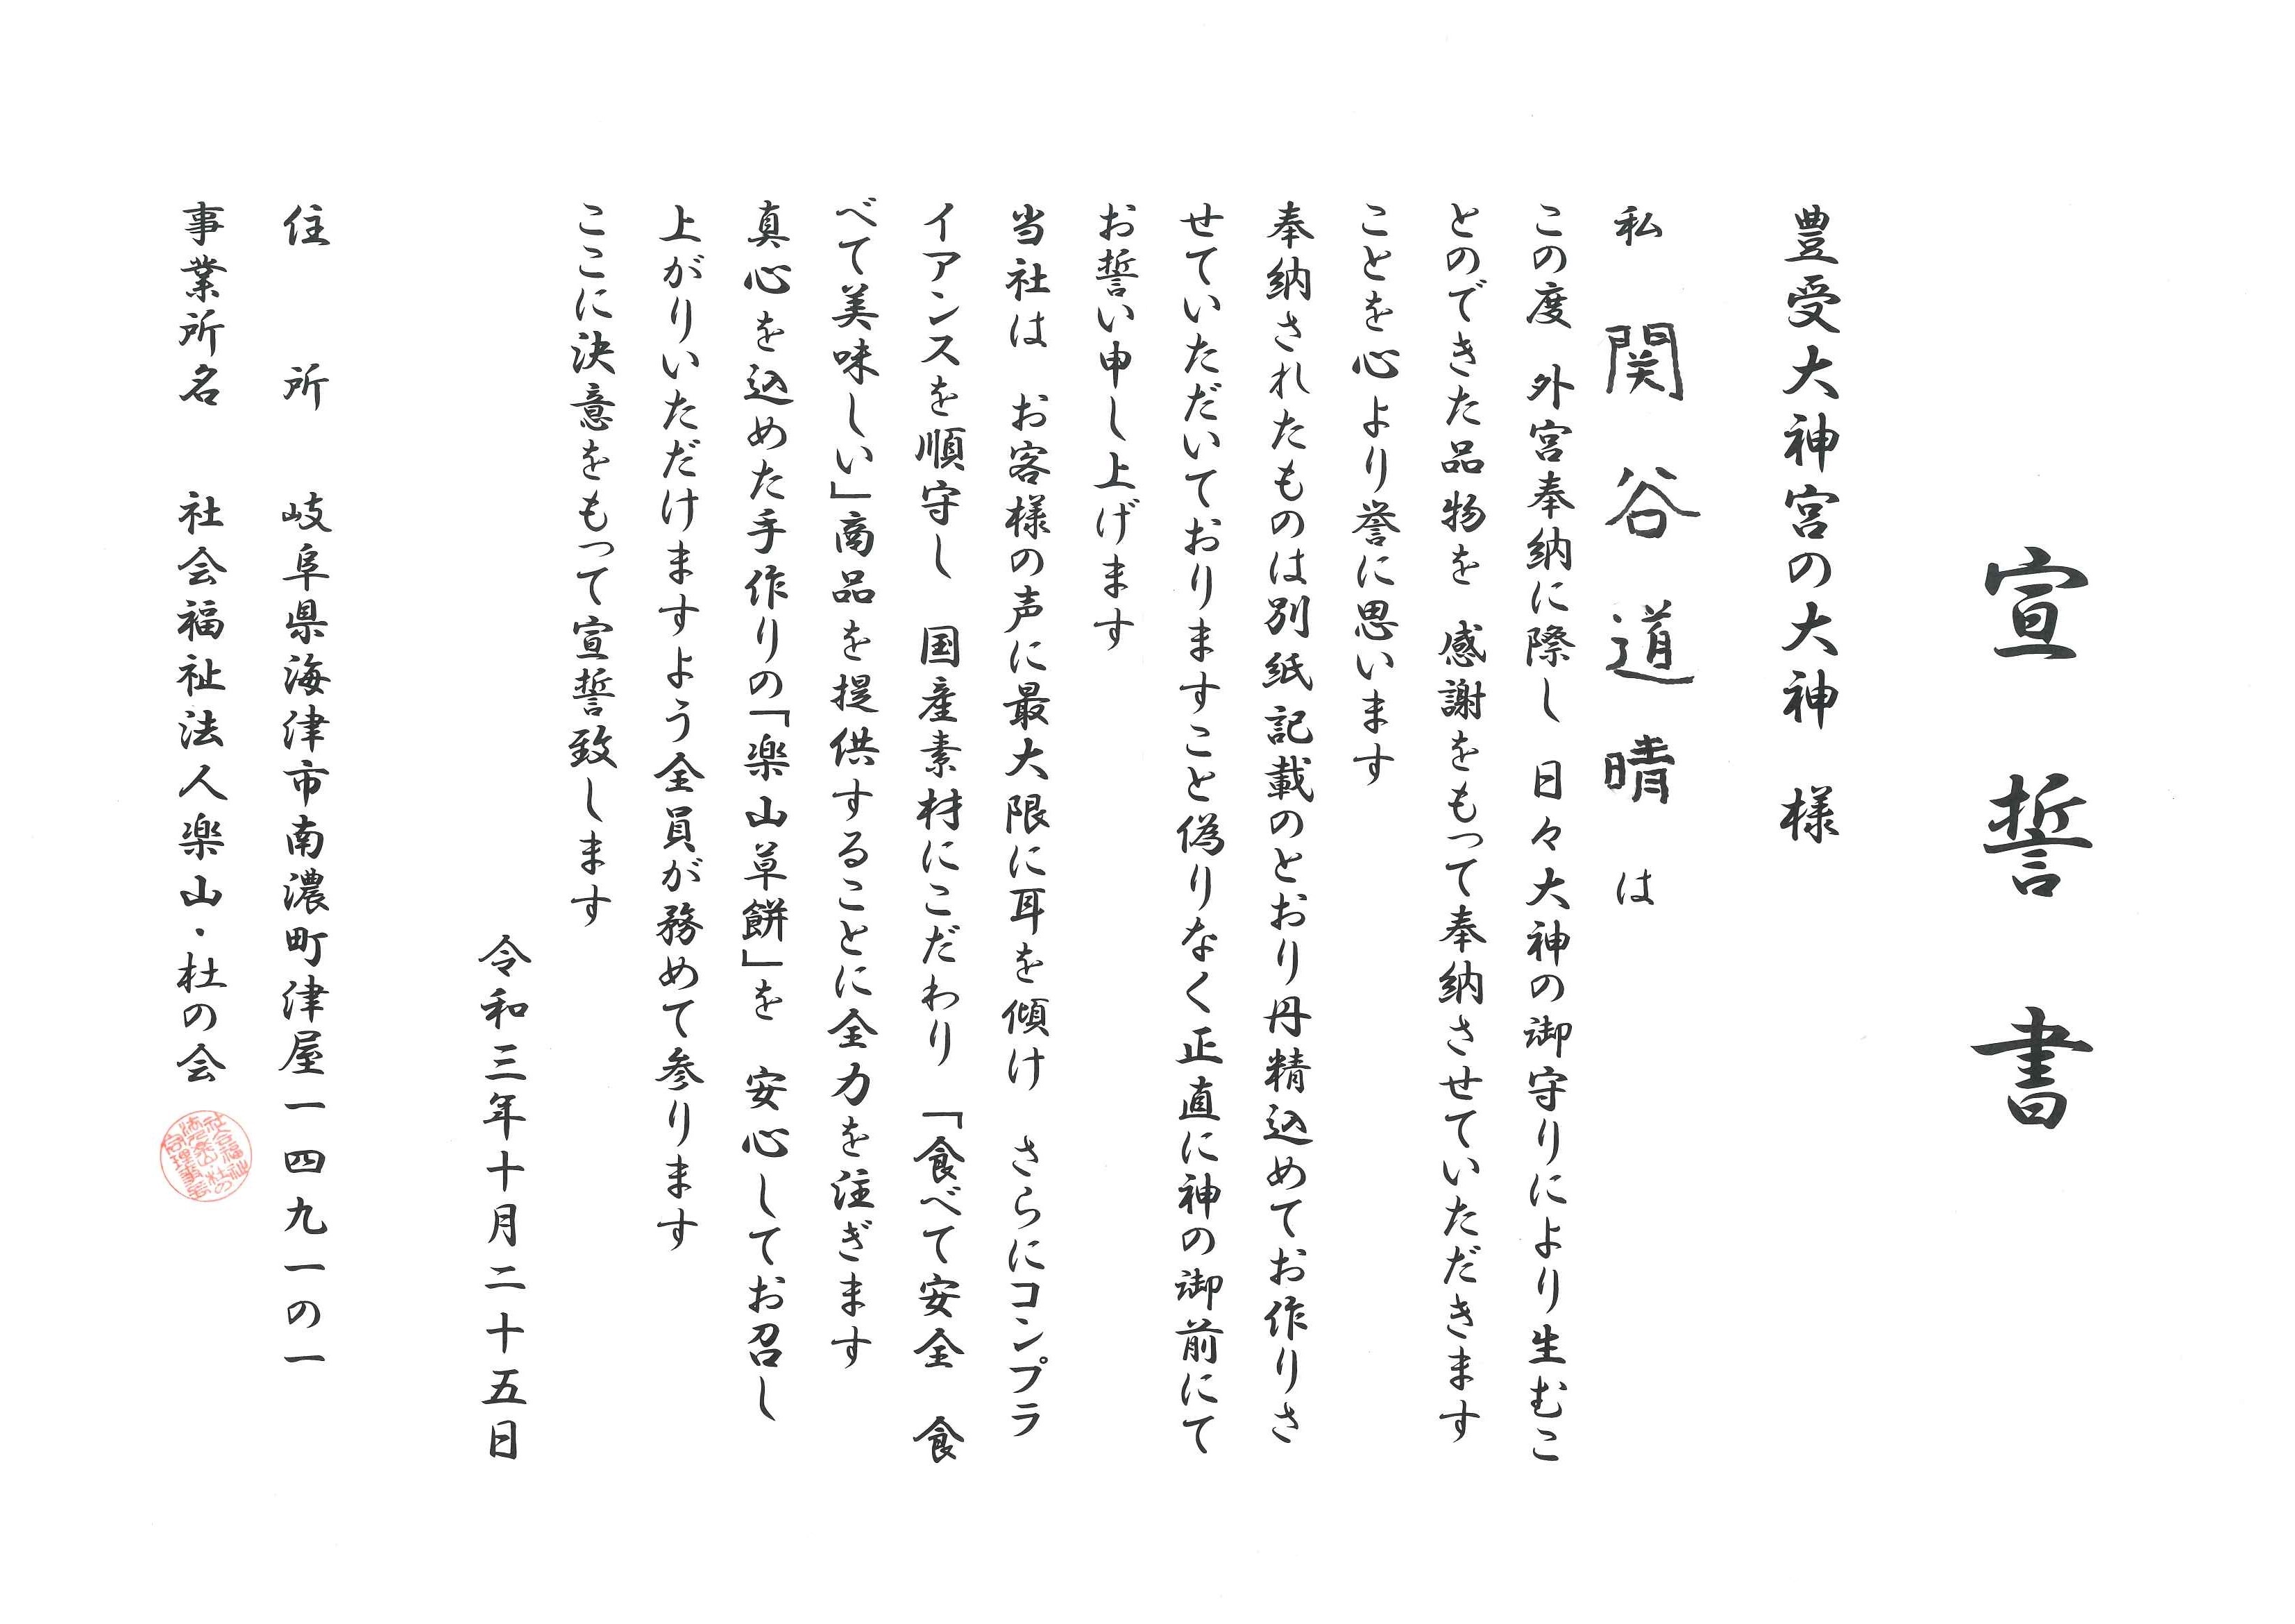 宣誓書
豊受大神宮の大神 様
私 関谷道晴 は
この度 外宮奉納に際し 日々大神の御守りにより生むこ
とのできた品物を 感謝をもって奉納させていただきます
ことを心より誉に思います
奉納されたものは別紙記載のとおり丹精込めてお作りさ
せていただいておりますこと偽りなく正直に神の御前にて
お誓い申し上げます
当社は お客様の声に最大限に耳を傾け さらにコンプラ
イアンスを順守し 国産素材にこだわり 「食べて安全 食
べて美味しい」商品を提供することに全力を注ぎます
真心を込めた手作りの「楽山草餅」を 安心してお召し
上がりいただけますよう全員が務めて参ります
ここに決意をもって宣誓致します
令和三年十月二十五日
住所 岐阜県海津市南濃町津屋一四九一の一
事業所名 社会福祉法人楽山・杜の会